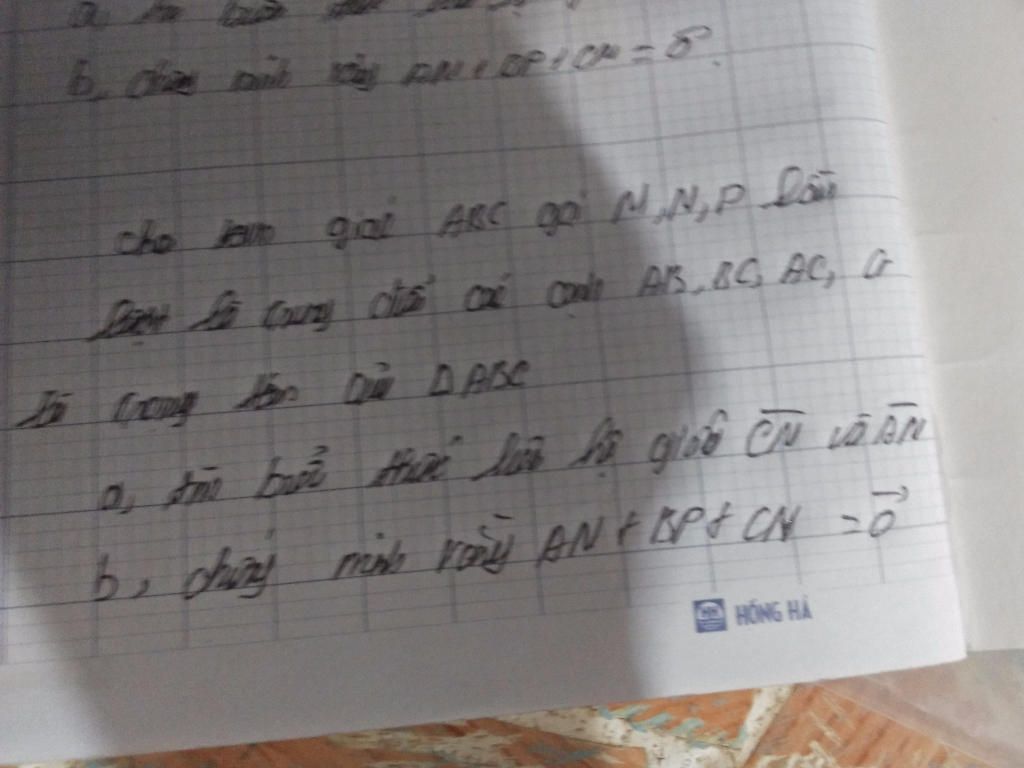 b, chứng minh rằng AN + BP + CM = 0⃗.
cho tam giác ABC gọi M, N, P lần
lượt là trung điểm các cạnh AB, BC, AC, G
là trọng tâm của ΔABC
a, tìm biểu thức liên hệ giữa CN và AN
b, chứng minh rằng AN + BP + CN = 0⃗
HỒNG HÀ